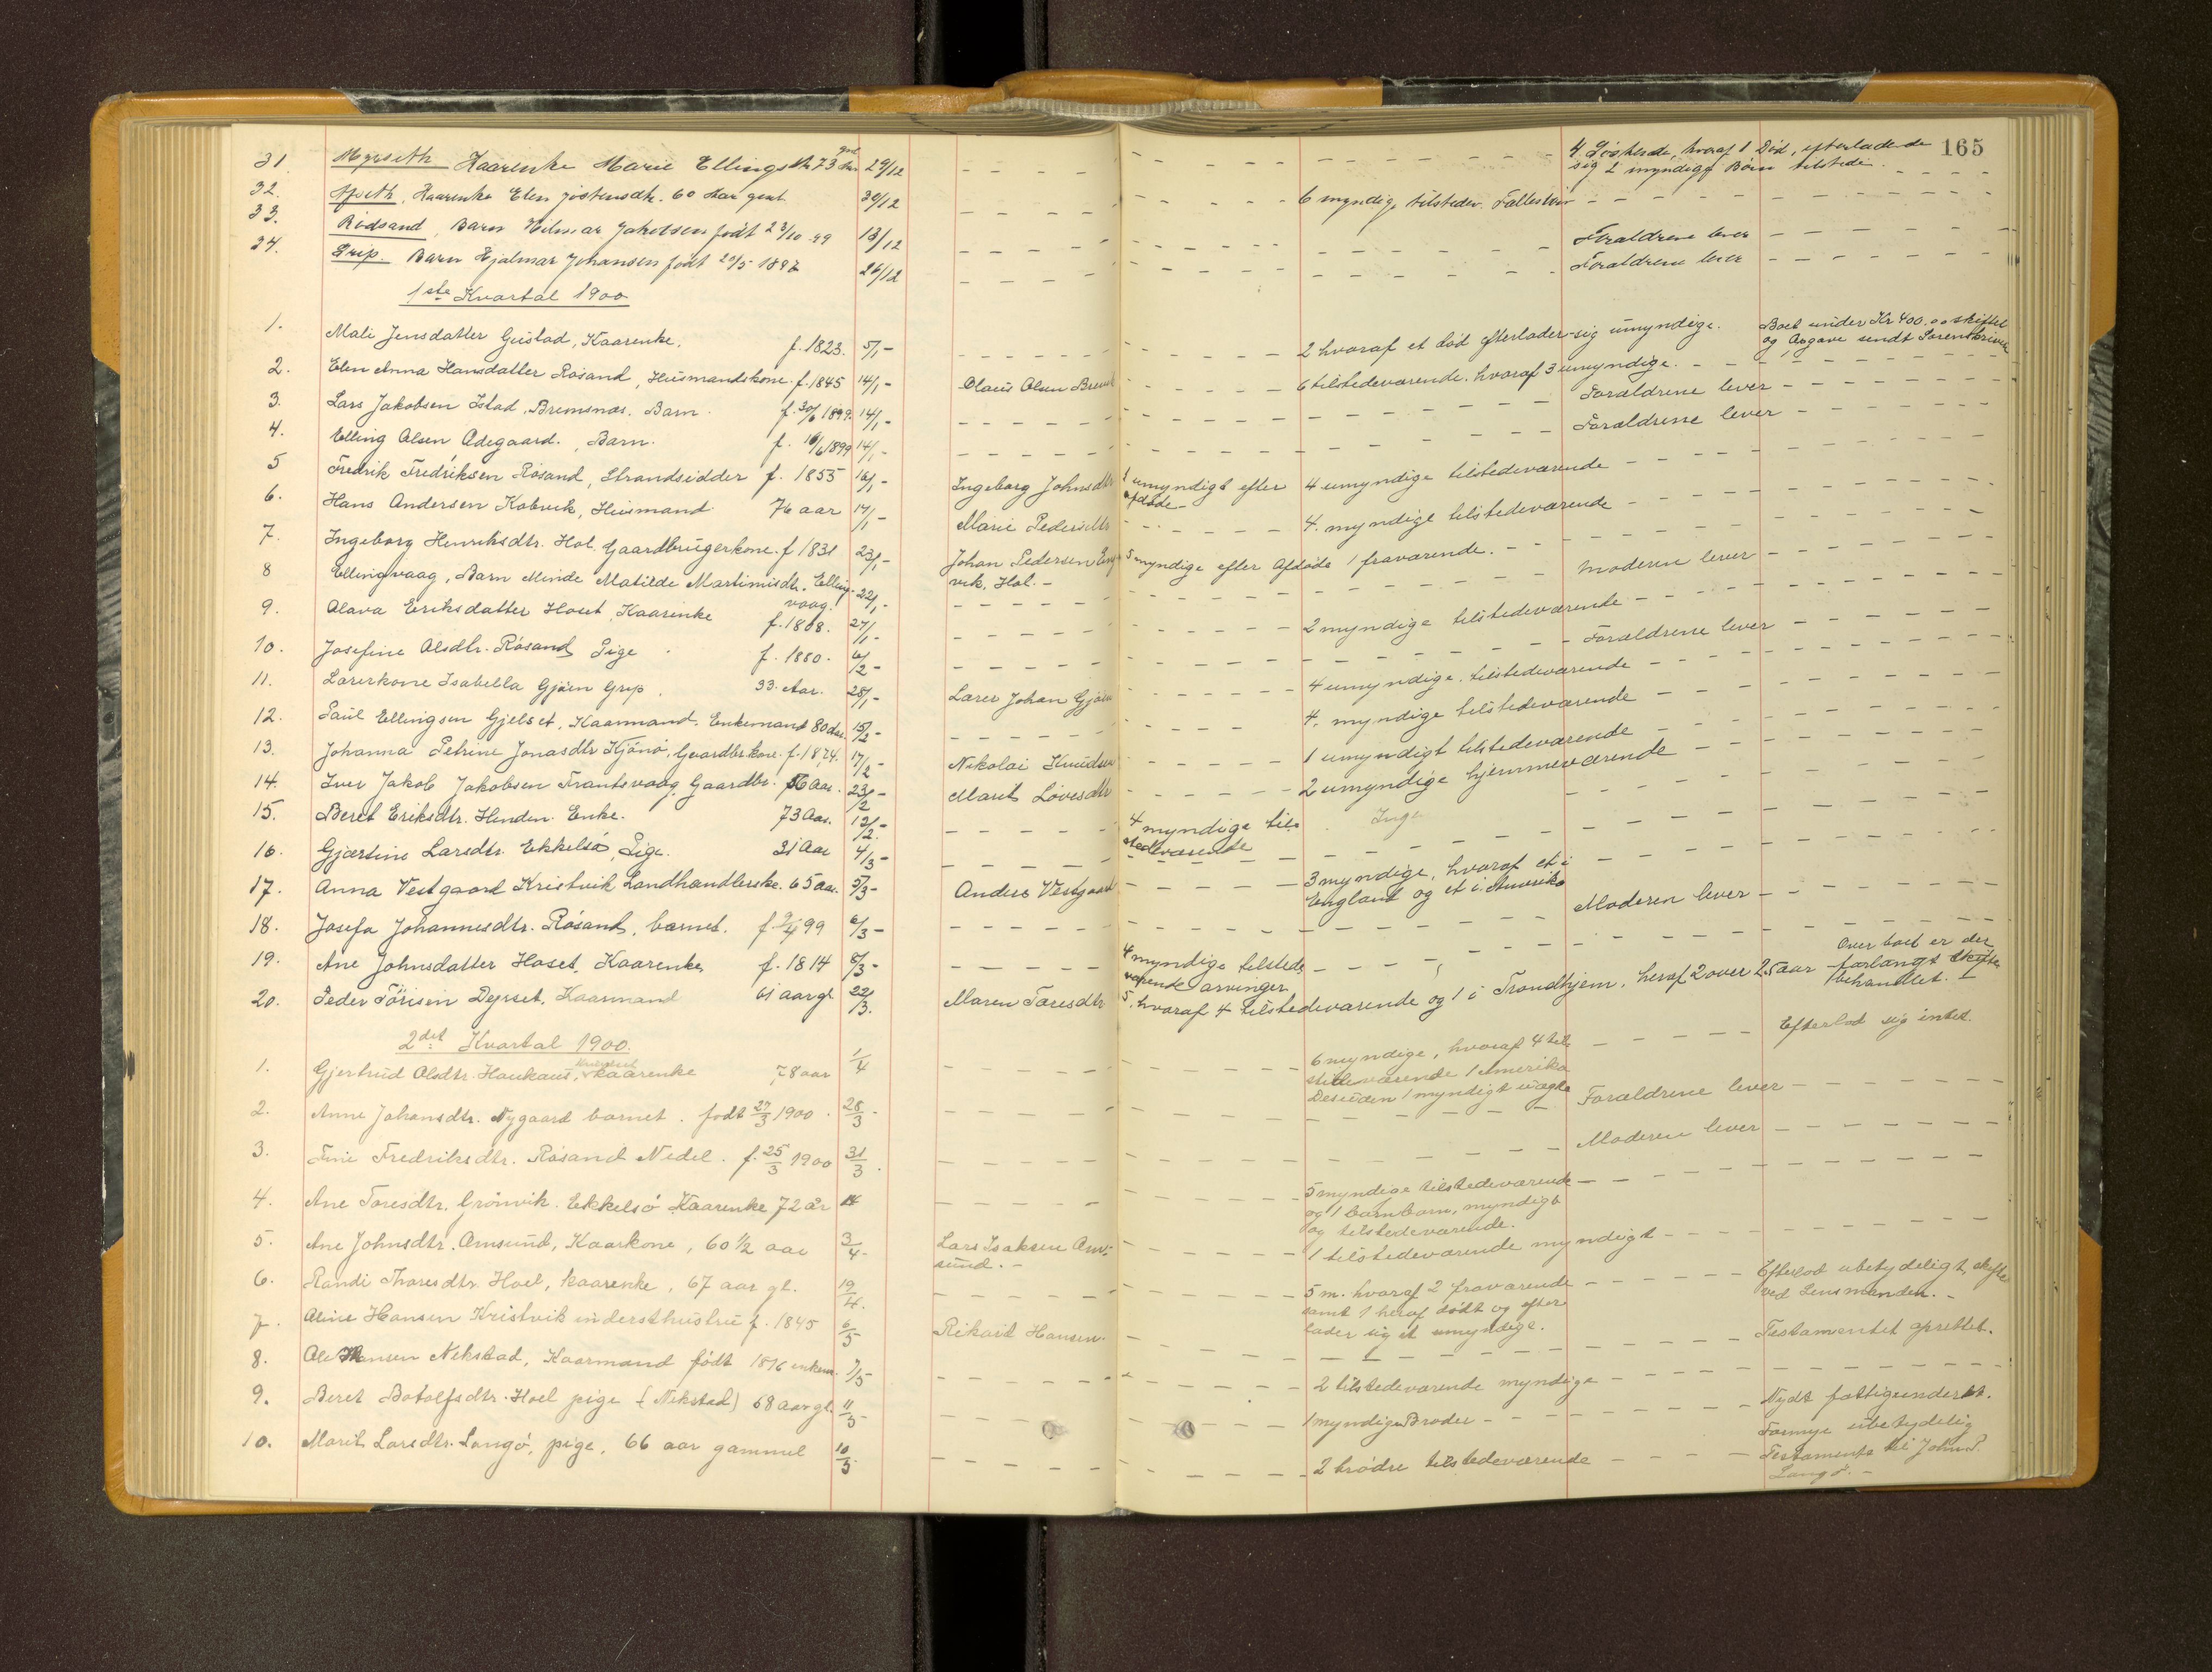 165
31. Myrseth Kaarenke Marie Ellingsdtr 73 Aar gml 29/12 4 Søskende, hvoraf 1 Død, efterladende
sig 2 myndige Børn tilstede.
32. Kaarenke Elen Jostensdtr. 60 Aar gml. 30/12 6 myndige tilstedev.
33. Rødsand, Barn Hilmar Jakobsen født 23/10 99 13/12 Forældrene lever
34. Grip. Barn Hjalmar Johansen født 20/5 26/12 Forældrene lever
1ste Kvartal 1900
1. Mali Jensdatter Gustad, Kaarenke. f. 1823. 5/1 - 2 hvoraf et død efterlader sig umyndige. Boet under Kr 400.oo skiftet
og Opgave sendt Sorenskriver
2. Elen Anna Hansdatter Røsand, Husmandskone. f. 1845 14/1 - Olaus Olsen 6 tilstedeværende. hvoraf 3 umyndige.
3. Lars Jakobsen Istad, Bremsnæs. Barn. f. 30/6 1899. 14/1 - Forældrene lever
4. Elling Olsen Ødegaard. Barn. f. 16/6 1899 14/1 - Forældrene lever
5 Fredrik Fredriksen Røsand, Strandsidder f. 1855 16/1 - Ingeborg Johnsdtr 1 umyndigt efter
afdøde - 4 umyndige tilstedeværende
6. Hans Andersen Kobvik, Husmand 76 aar 17/1 - Marie Pedersdtr 4. myndige tilstedeværende
7. Ingeborg Henriksdtr. Hol. Gaardbrugerkone. f 1831 23/1 - Johan Pedersen
vik, Hol. - 5 myndige efter Afdøde 1 fraværende.
8 Ellingvaag, Barn Minde Matilde Martinusdtr. Elling-
vaag. 22/1 - Moderen lever
9. Olava Eriksdatter Hoset, Kaarenke f. 1808. 27/1 - 2 myndige tilstedeværende
10. Josefine Olsdtr. Røsand Pige f. 1880. 6/2 - Forældrene lever
11. Lærerkone Isabella Gjøen Grip. 33. Aar. 28/1 - Lærer Johan Gjøen 4 umyndige. tilstedeværende
12. Paul Ellingsen Gjelset, Kaarmand. Enkemand 80 Aar. 15/2 - 4. myndige tilstedeværende
13. Johanna Petrine Jonasdtr Kjønø, Gaardbr.kone. f. 1874. 17/2 - Nikolai Knudsen 1 umyndigt tilstedeværende
14. Iver Jakob Jakobsen Frantsvaag, Gaardbr. 56 Aar. 23/2 - Marit Lovesdtr 2 umyndige hjemmeværende
15. Beret Eriksdtr. Henden. Enke. 73 Aar. 12/2 - 4 myndige til-
stedeværende Inge
16. Gjertine Larsdtr. Ekkelsø, Pige. 31 Aar 4/3 -
17. Anna Vestgaard Kristvik Landhandlerske. 65 aar. 5/3 - Anders Vestgaard 3 myndige, hvoraf et i
England og et i. Amerika
18. Josefa Johannesdtr. Røsand, barnet. f. 9/4 99 6/3 - Moderen lever
19. Ane Johnsdatter Hoset, Kaarenke f. 1814 8/3 - 4 myndige tilstede
værende arvinger Over boet er der
forlangt skifte
behandlet.
20. Peder Tørisen Dyrset, Kaarmand 61 aar gl. 22/3. Maren Toresdtr 5. hvoraf 4 tilstedeværende og 1 i Trondhjem. heraf 2 over 25 aar
2det Kvartal 1900.
1. Gjertrud Olsdtr. Haukaus, kaarenke 78 aar 1/4 6 myndige, hvoraf 4 til
stedeværende 1 Amerika
Desuden 1 myndigt uægte Efterlod sig intet.
2. Anne Johansdtr. Nygaard barnet. født 27/3 1900. 28/3 - Forældrene lever
3. Fredriksdtr. Røsand Nedel. f. 25/3 1900 31/3. Moderen lever
4. Ane Toresdtr. Grönvik. Ekkelsö Kaarenke 72 år 5 myndige tilstedeværende
og 1 barnbarn, myndigt
og tilstedeværende.
5. Ane Johnsdtr. Omsund, Kaarkone, 60 1/2 aar 3/4 - Lars Isaksen Om-
sund. - 1 tilstedeværende myndigt
6. Randi Thoresdtr. Hoel, kaarenke, 67 aar gl. 19/4. 5 m. hvoraf 2 fraværende
samt 1 heraf dödt og efter
lader sig et umyndige. Efterlod ubetydeligt, skifte
ved Lensmanden. -
7. Hansen Kristvik indersthustru f. 1845 6/5 Rikart Hansen. Testamentet oprettet.
8. Ole Hansen Nekstad, Kaarmand född 1816 enkem. 7/5 - 2 tilstedeværende myndige
9. Beret Botolfsdtr. Hoel pige (Nekstad) 68 aar gl. 11/5 - 1 myndig Broder Nydt fattigunderst.
10. Marit Larsdtr. Langö, pige, 66 aar gammel 10/5. 2 brödre tilstedeværende Formue ubetydelig
Testamente til John P.
Langö. -